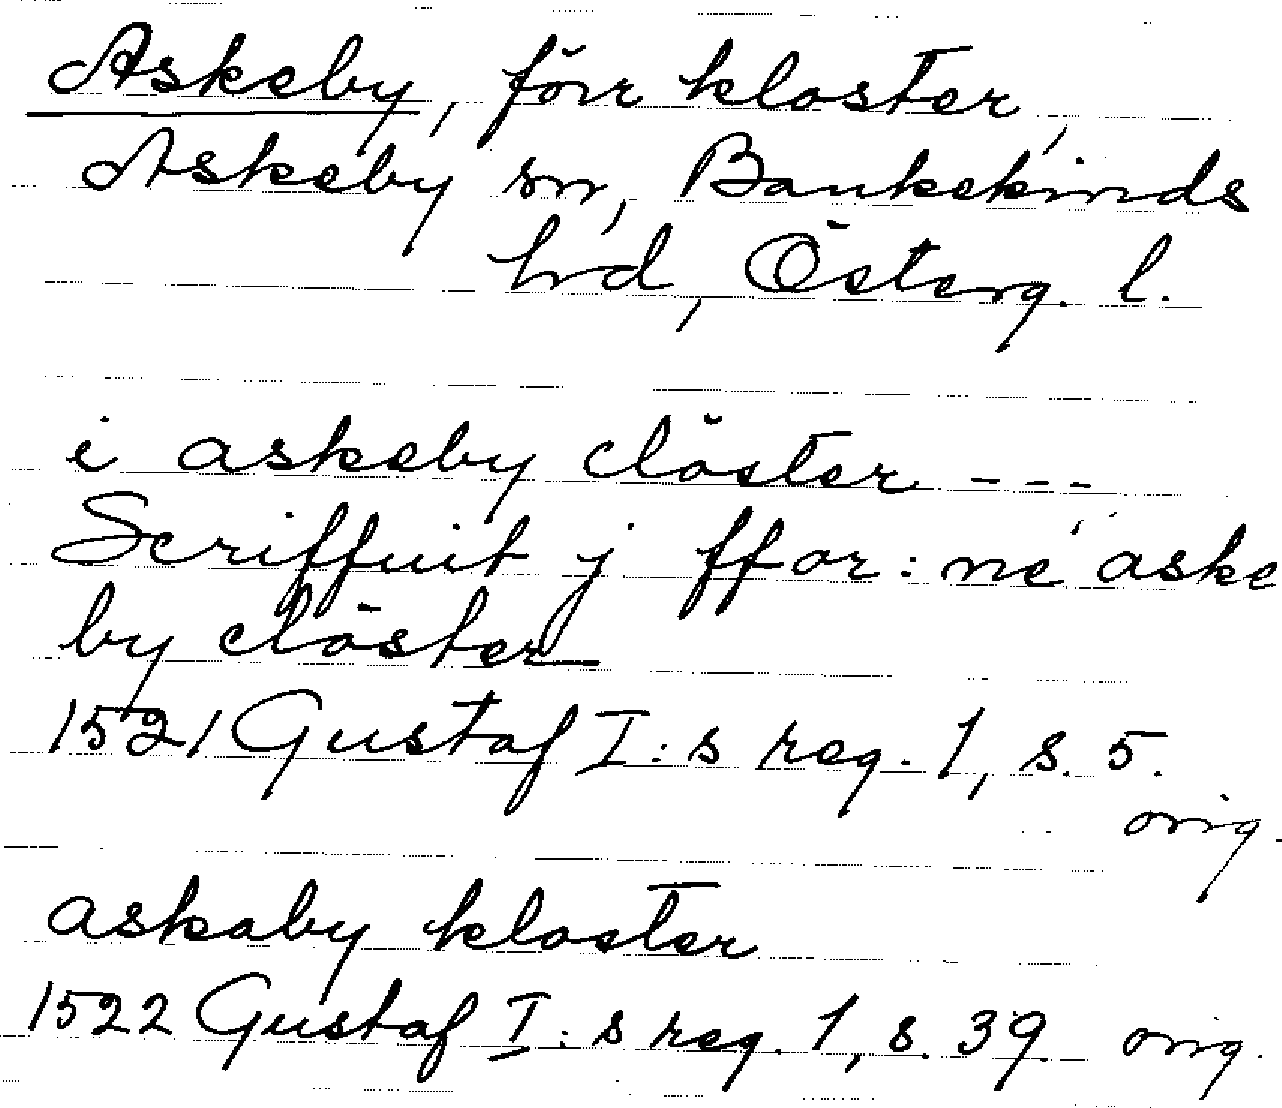 Askeby, förr kloster,
Askeby sn, Bankekinds
hrd, Österg. l.
i askeby clöster ---
Scriffuit j ffor: ne aske
by clöster
1521 Gustaf I:s reg. 1, s. 5.
orig.
askaby kloster
1522 Gustaf I:s reg. 1, s. 39 orig.